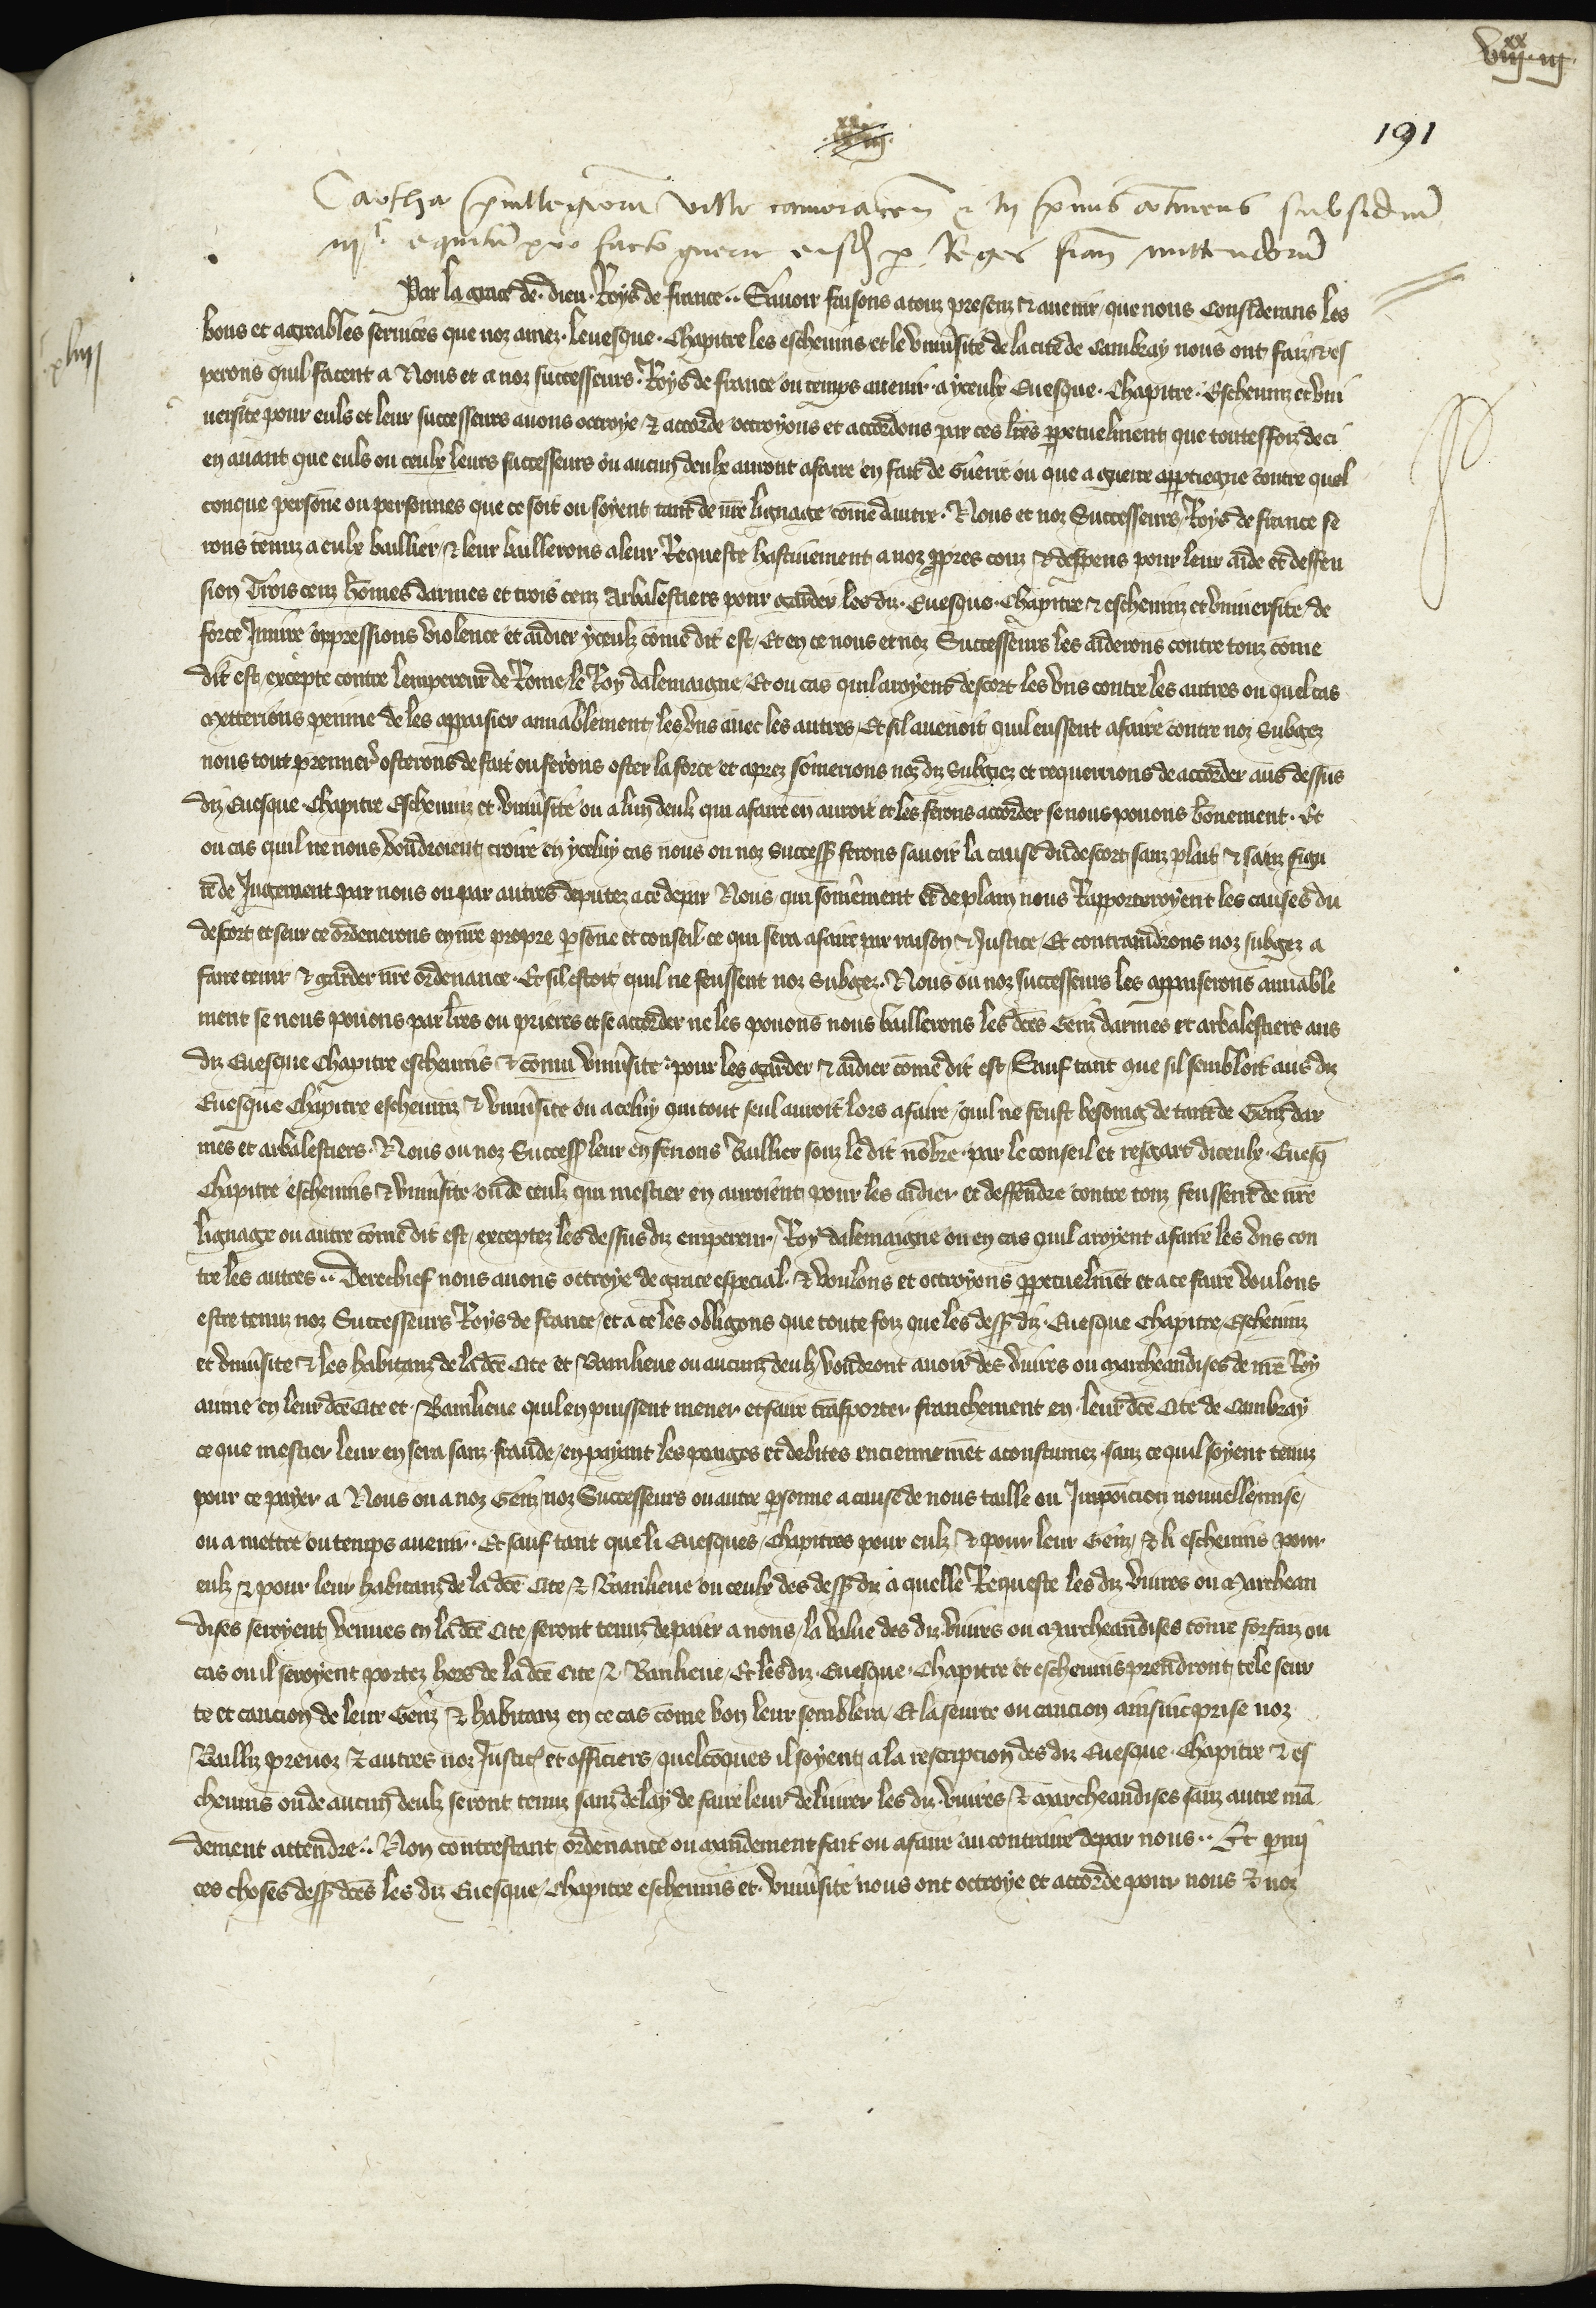 viii xx iii
191
Cartha privillegiorum ville cameracen et in primis continens subsidium
iii c equitum pro facto guerre eisdem per Reges francie mittendorum
xliiii
Par la grace de dieu Roys de france Savoir faisons a touz presenz & avenir que nous Considerans les
bons et agreables services que noz amez levesque Chapitre les eschevins et le université de la cité de Cambray nous ont faiz & es
perons quil facent a Nous et a noz successeurs Roys de france ou temps avenir a yceulx Evesque Chapitre Eschevins et uni
versite pour euls et leur successeurs avons octroye & accorde octroyons et accordons par ces lres perpetuelment que toutesfoiz de ci
en avant que euls ou ceulx leurs successeurs ou aucun deulx auront afaire en fait de Guerre ou que a guerre appartiegne contre quel
conque persone ou personnes que ce soit ou soyent tant de nre lignage come dautre Nous et noz Successeurs Roys de france se
rons tenuz a eulx baillier & leur baillerons a leur Requeste hastivement a noz propres couz & despens pour leur aide et deffen
sion Trois cenz homes darmes et trois cenz Arbalestiers pour garder les diz Evesque Chapitre & eschevins et université de
force Iniure oppressions violence et aidier yceulz come dit est Et en ce nous et noz Successeurs les aiderons contre touz come
dit est excepte contre lempereur de Rome le Roy dalemaigne Et ou cas quil aroyent descort les uns contre les autres ou quel cas
metterions penne de les appaisier amiablement les uns avec les autres Et sil avenoit quil eussent afaire contre noz Subgez
nous tout premier osterons de fait ou ferons oster la force et aprez somerions noz diz Subgiez et requerrions de accorder aus dessus
diz Evesque Chapitre Eschevins et université ou a lun deulz qui afaire en auroit et les ferons accorder se nous povons bonement Et
ou cas quil ne nous voudroient croire en yceluy cas nous ou noz Success ferons savoir la cause du descort sanz plait & sanz figu
re de Jugement par nous ou par autres deputez a ce depar Nous qui somerment et de plain nous Rapporteroyent les causes du
descort et seur ce ordenerons en nre propre persone et conseil ce qui sera afaire par raison & Justice Et contraindrons noz subgez a
faire tenir & garder nre ordenance Et sil estoit quil ne feussent noz Subgez Nous ou noz successeurs les appaiserons amiable
ment se nous povons par lres ou prieres et se accorder ne les povons nous baillerons les dces Genz darmes et arbalestiers aus
diz Evesque Chapitre eschevins & université pour les garder & aidier come dit est Sauf tant que sil sembloit aus diz
Evesque Chapitre eschevins & université ou a celuy qui tout seul auroit lors afaire quil ne feust besoing de tant de Genz dar
mes et arbalestiers Nous ou noz Success leur en ferions Baillier souz le dit nombre par le conseil et resgart diceulx Evesq
Chapitre eschevins & université ou de ceulz qui mestier en auroient pour les aidier et deffendre contre touz feussent de nre
lignage ou autre come dit est exceptez les dessus diz empereur Roy dalemaigne ou en cas quil aroyent afaire les uns con
tre les autres Derechief nous avons octroye de grace especial & voulons et octroyons perpetuelment et a ce faire voulons
estre tenuz noz Successeurs Roys de france et a ce les obligons que toute foiz que les dess diz Evesque Chapitre Eschevins
et université & les habitanz de la dce Cite et Banlieue ou aucuns deulz voudront avoir des vivres ou marcheandises de nre Roy
aume en leur dce Cite et Banlieue quil en puissent mener et faire transporter franchement en leur dce Cite de Cambray
ce que mestier leur en sera sanz fraude en payant les peages et debites enciennement acoustumez sanz ce quil soyent tenuz
pour ce payer a Nous ou a noz Genz noz Successeurs ou autre personne a cause de nous taille ou Imposicion nouvelle mise
ou a mettre ou temps avenir Et sauf tant que li Evesques Chapitres pour eulz & pour leur Genz & li eschevins pour
eulz & pour leur habitanz de la dce Cite & Banlieue ou ceulx des dess diz a quelle Requeste les diz vivres ou Marchean
dises seroyent venues en la dce Cite seront tenuz de paier a nous la value des diz vivres ou Marcheandises come forfaiz ou
cas ou il seroyent portez hors de la dce Cite & Banlieue Et les diz Evesque Chapitre et eschevins prendront tele seur
te et caucion de leur Genz & habitanz en ce cas come bon leur semblera Et la seurte ou caucion ainsinc prise noz
Bailliz prevoz & autres noz Justic et officiers quelcoques il soyent a la rescripcion des diz Evesque Chapitre & es
chevins ou de aucun deulz seront tenuz sanz delay de faire leur delivrer les diz vivres & marcheandises sanz autre man
dement attendre Non contrestant ordenance ou mandement fait ou afaire au contraire depar nous Et parmi
ces choses dess dces les diz Evesque Chapitre eschevins et université nous ont octroye et accorde pour nous & noz